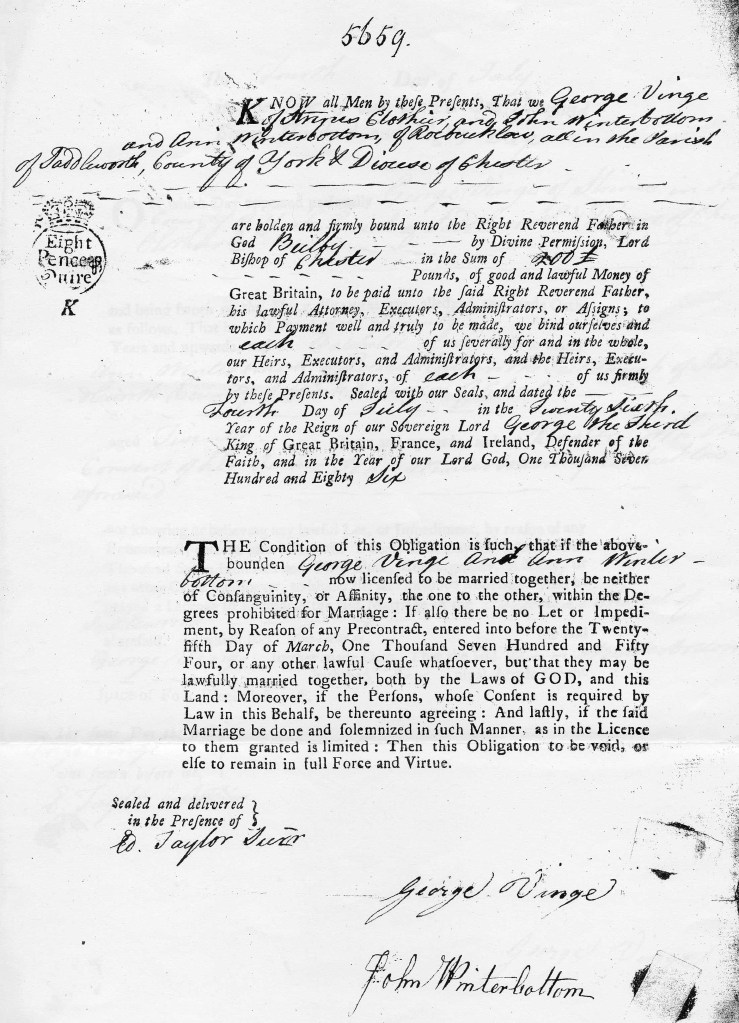 5659.
KNOW all Men by theſe Preſents, That we George Vinge
of Clothier, and John Winterbottom
and Ann Winterbottom, of Roebucklow, all in the Pariſh
of Saddleworth, County of York & Diocese of Chester
are holden and firmly bound unto the Right Reverend Father in
God Beilby by Divine Permiſſion, Lord
Biſhop of Chester in the Sum of 200£
Pounds, of good and lawful Money of
Great Britain, to be paid unto the ſaid Right Reverend Father,
his lawful Attorney, Executors, Adminiſtrators, or Aſſigns; to
which Payment well and truly to be made, we bind ourſelves and
each of us ſeverally for and in the whole,
our Heirs, Executors, and Adminiſtrators, and the Heirs, Execu-
tors, and Adminiſtrators, of each of us firmly
by theſe Preſents. Sealed with our Seals, and dated the
Fourth Day of July in the Twenty Sixth
Year of the Reign of our Sovereign Lord George the Third
King of Great Britain, France, and Ireland, Defender of the
Faith, and in the Year of our Lord God, One Thouſand Seven
Hundred and Eighty Six
Eight
Pence pr
Quire
K
THE Condition of this Obligation is ſuch, that if the above-
bounden George Vinge And Ann Winter-
bottom now licenſed to be married together, be neither
of Conſanguinity, or Affinity, the one to the other, within the De-
grees prohibited for Marriage: If alſo there be no Let or Impedi-
ment, by Reaſon of any Precontract, entered into before the Twenty-
fifth Day of March, One Thouſand Seven Hundred and Fifty
Four, or any other lawful Cauſe whatſoever, but that they may be
lawfully married together, both by the Laws of GOD, and this
Land: Moreover, if the Perſons, whoſe Conſent is required by
Law in this Behalf, be thereunto agreeing: And laſtly, if the ſaid
Marriage be done and ſolemnized in ſuch Manner, as in the Licence
to them granted is limited: Then this Obligation to be void, or
elſe to remain in full Force and Virtue.
Sealed and delivered
in the Preſence of
Ed. Taylor Surr
George Vinge
John Winterbottom